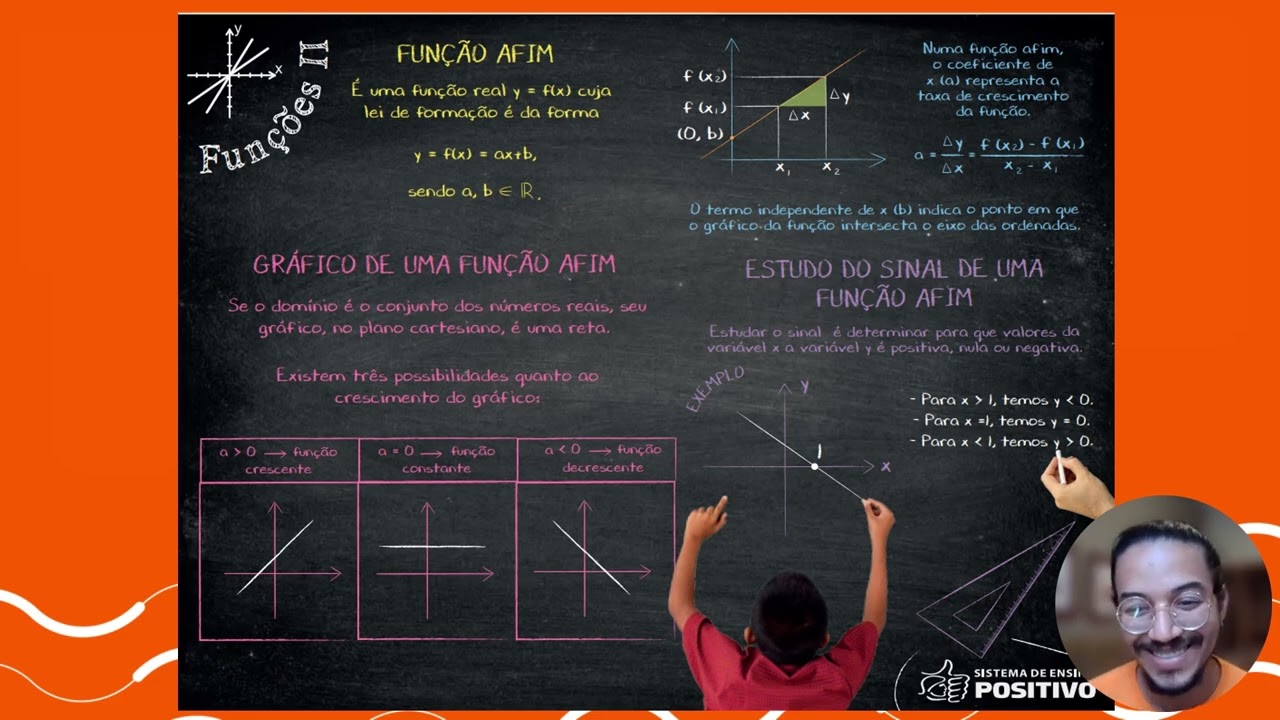 Funções II
y
x
FUNÇÃO AFIM
É uma função real y = f(x) cuja
lei de formação é da forma
y = f(x) = ax+b,
sendo a, b ∈ ℝ.
f (x₂)
f (x₁)
(0, b)
△y
△x
x₁
x₂
Numa função afim,
o coeficiente de
x (a) representa a
taxa de crescimento
da função.
a = △y/△x = f (x₂) - f (x₁)/x₂ - x₁
O termo independente de x (b) indica o ponto em que
o gráfico da função intersecta o eixo das ordenadas.
GRÁFICO DE UMA FUNÇÃO AFIM
Se o domínio é o conjunto dos números reais, seu
gráfico, no plano cartesiano, é uma reta.
Existem três possibilidades quanto ao
crescimento do gráfico:
a > 0 → função
crescente
a = 0 → função
constante
a < 0 → função
decrescente
ESTUDO DO SINAL DE UMA
FUNÇÃO AFIM
Estudar o sinal é determinar para que valores da
variável x a variável y é positiva, nula ou negativa.
EXEMPLO
y
1
x
- Para x > 1, temos y < 0.
- Para x =1, temos y = 0.
- Para x < 1, temos y > 0.
SISTEMA DE ENSI
POSITIVO